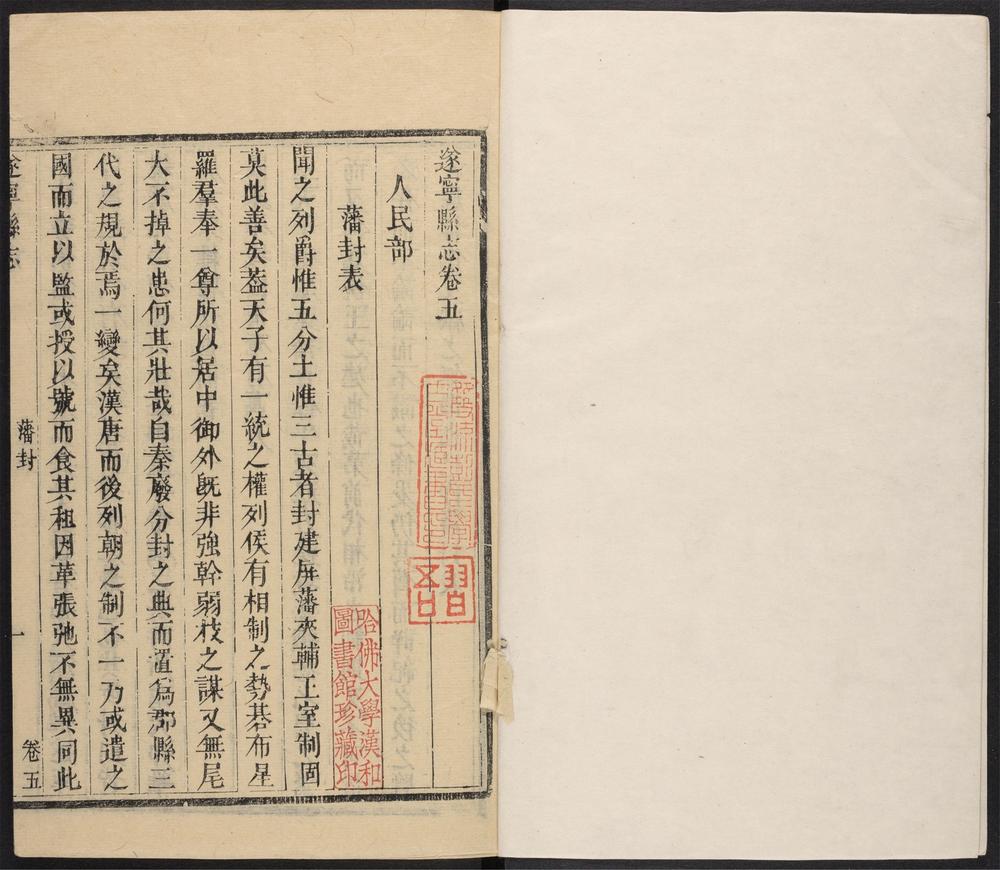 遂寧縣志卷五
人民部
藩封表
聞之列爵惟五分土惟三古者封建屏藩夾輔王室制固
莫此善矣葢天子有一統之權列侯有相制之勢碁布星
羅羣奉一尊所以居中御外旣非強幹弱枝之謀又無尾
大不掉之患何其壯哉自秦廢分封之典而置爲郡縣三
代之規於焉一變矣漢唐而後列朝之制不一乃或遣之
國而立以監或授以號而食其租因革張弛不無異同此
遂寧縣志
藩封
一
卷五
哈佛大學漢和
圖書館珍藏印